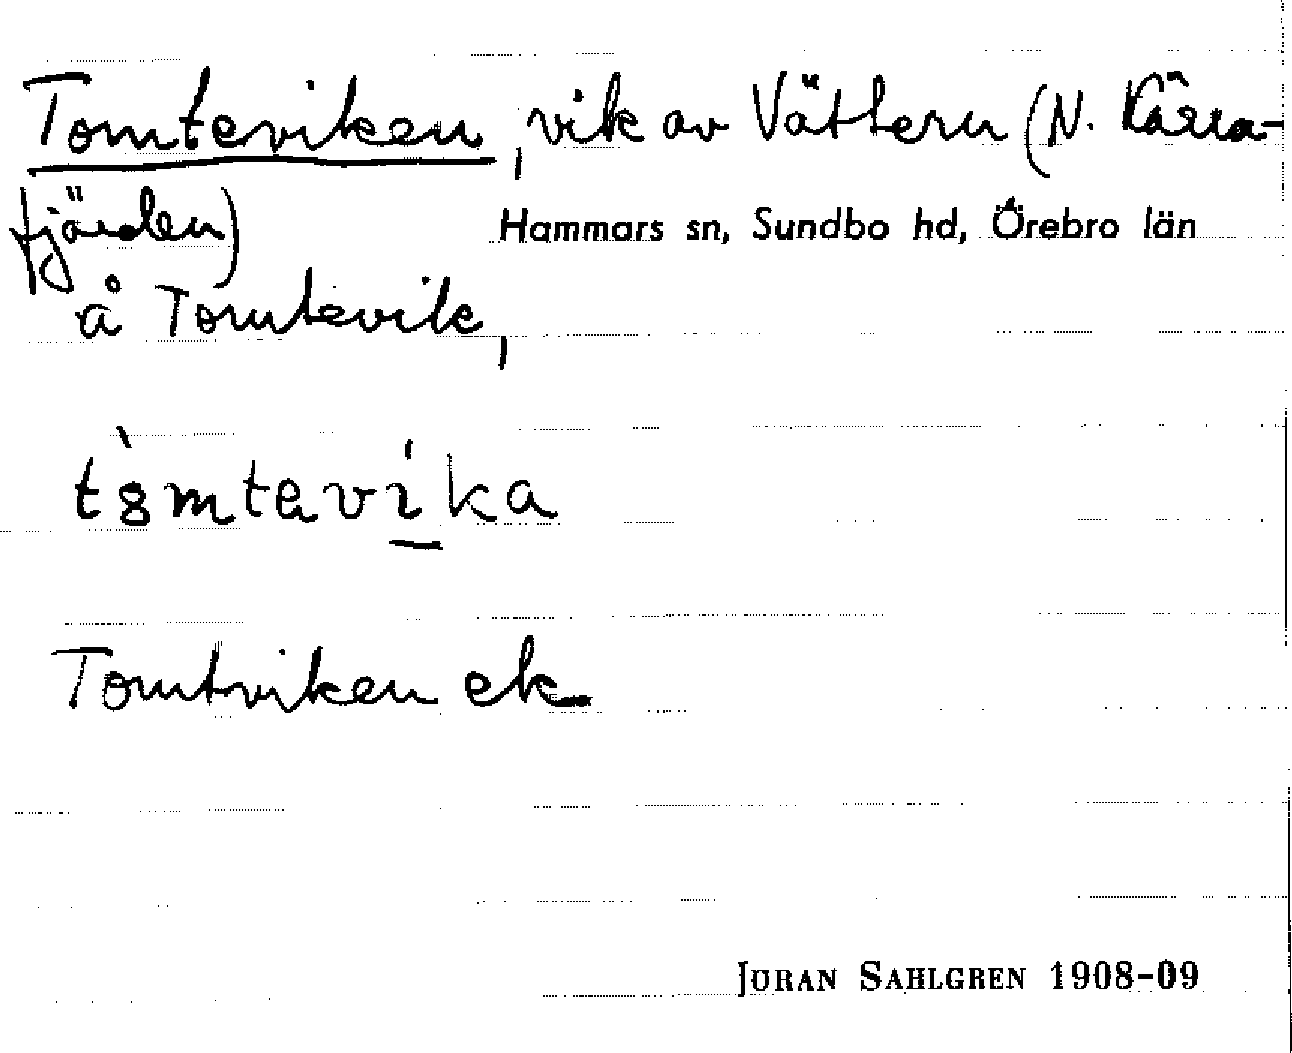 Tomteviken, vik av Vättern (N. Kärra-
fjärden)
Hammars sn, Sundbo hd, Örebro län
å Tomtevik,
tòmtavika
Tomtviken ek.
JÖRAN SAHLGREN 1908-09